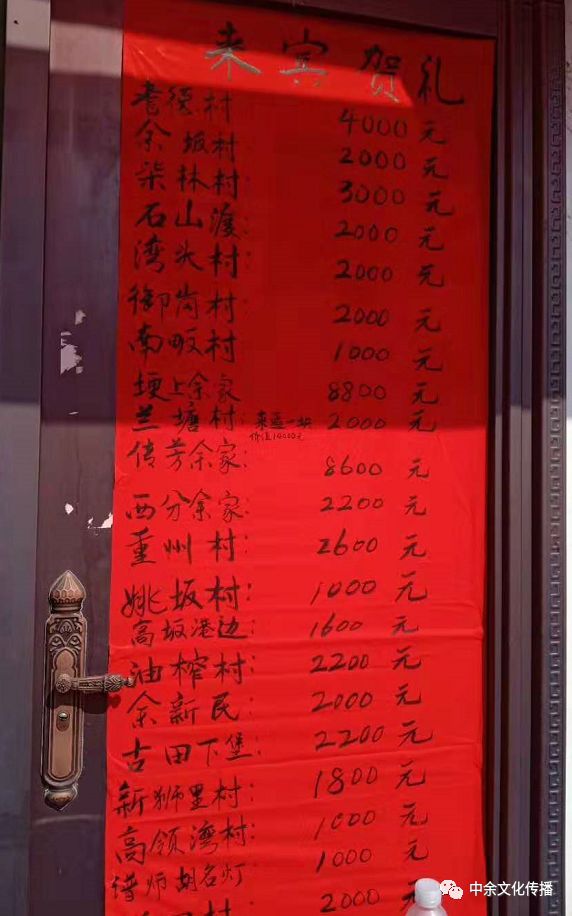 来宾贺礼
耆德村 4000元
余坂村 2000元
柒林村 3000元
石山渡: 2000元
湾头村: 2000元
御岗村 2000元
南畈村 1000元
埂上余家 8800元
兰塘村: 来匾一块 2000元
价值10000元
传芳余家: 8600元
西分余家: 2200元
重州村: 2600元
姚坂村: 1000元
高坂港边: 1600元
油榨村: 2200元
余新民: 2000元
古田下堡: 2200元
新狮里村: 1800元
高领湾村: 1000元
谱师胡名灯 1000元
田村 2000元
中余文化传播